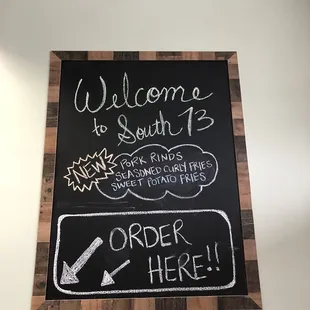 Welcome
to South 13
NEW
PORK RINDS
SEASONED CURLY FRIES
SWEET POTATO FRIES
ORDER
HERE!!